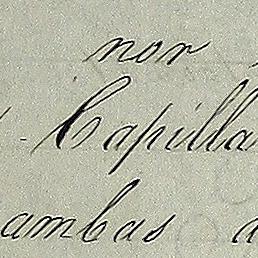 nor
Capilla
ambas a